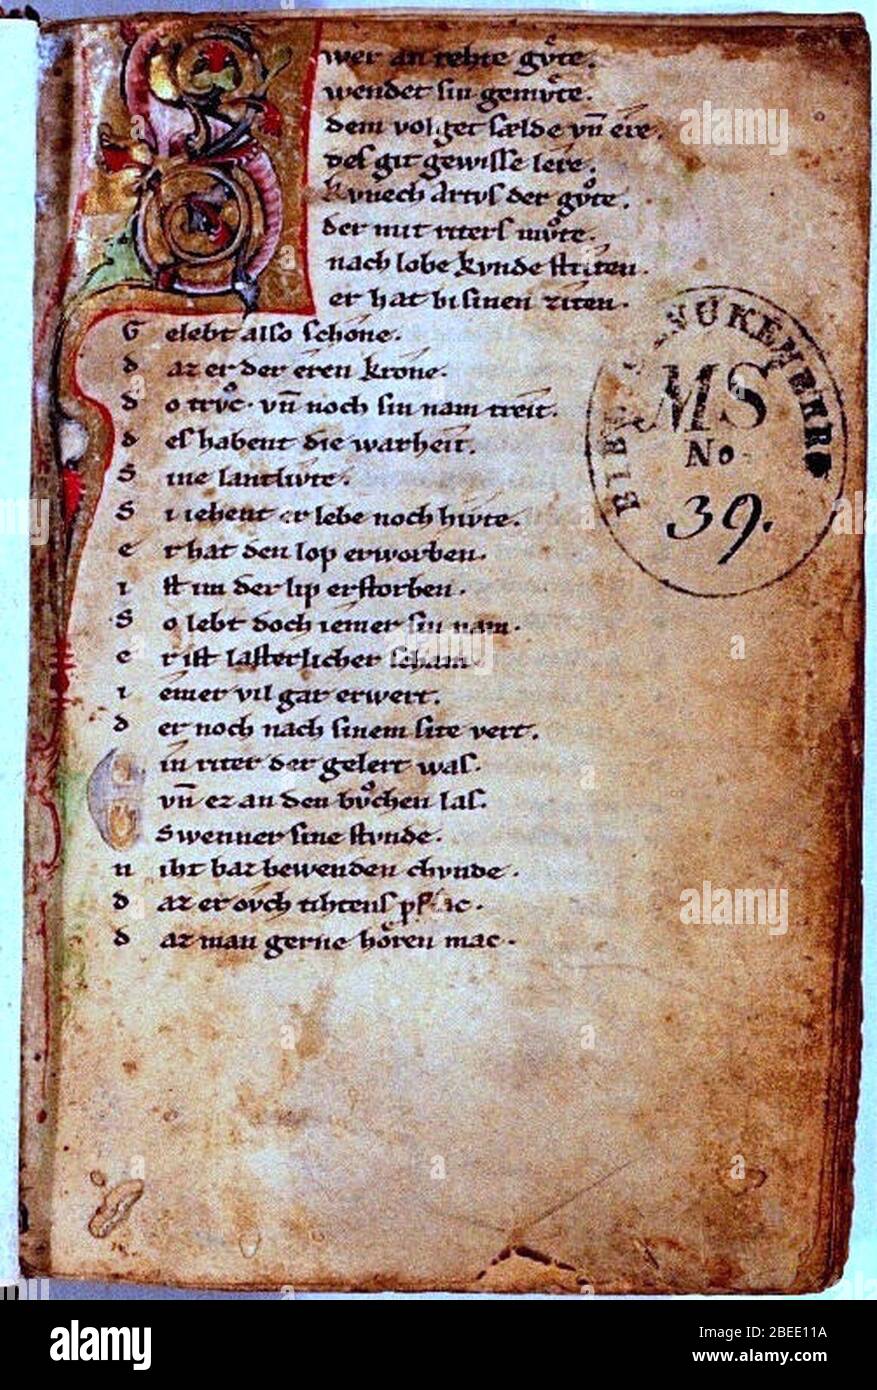 Swer an rehte gvͦte.
wendet sin gemvͤte.
dem volget sælde vn̄ ere.
des git gewisse lere.
kvnech Artvs der gvͦte.
der mit riters mvͦte.
nach lobe kvnde striten.
er hat bi sinen ziten.
G elebt also schone.
d az er der eren krone.
d o trvͦc. vn̄ noch sin nam treit.
d es habent die warheit.
S ine lantlivte.
S i iehent er lebe noch hivte.
e r hat den lop erworben.
i st im der lip erstorben.
S o lebt doch iemer sin nam.
e r ist lasterlicher scham.
i emer vil gar erwert.
d er noch nach sinem site vert.
in riter der gelert was.
vn̄ ez an den bvͦchen las.
Swenner sine stvnde.
n iht baz bewenden chvnde.
d az er ovch tihtens pflac.
d az man gerne hoͤren mac.
MS
No
39.
alamy
Image ID: 2BEE11A
www.alamy.com